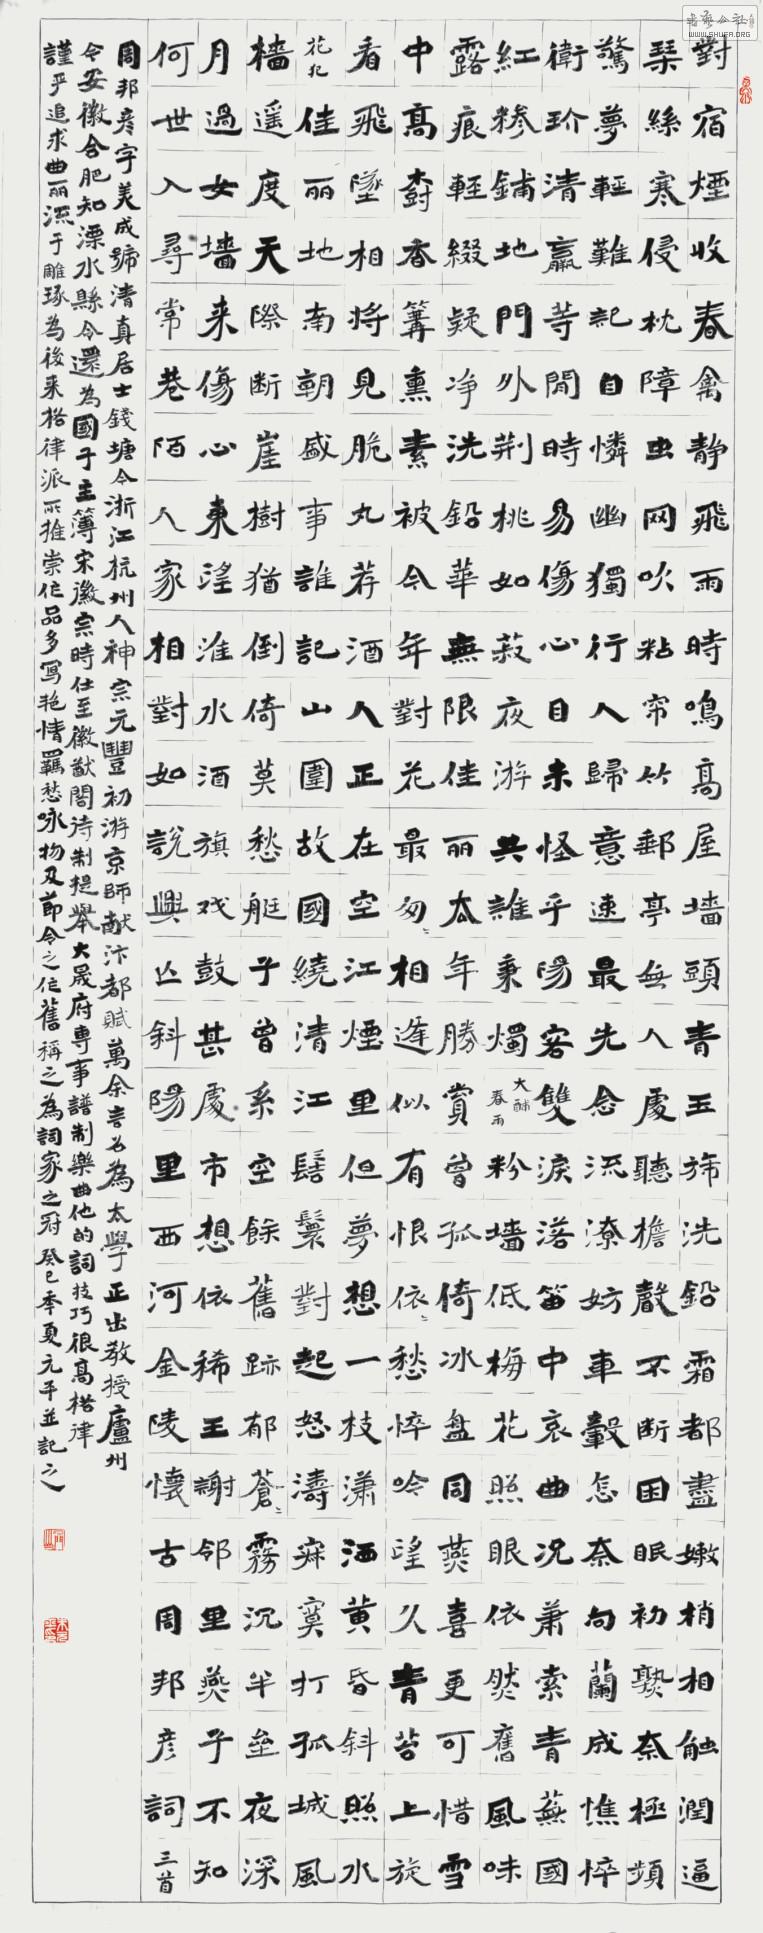 對宿煙收春禽靜飛雨時鳴高屋墻頭青玉旆洗鉛霜都盡嫩梢相触潤逼
琹絲寒侵枕障虫网吹粘帘竹郵亭無人處聽檐聲不断困眠初熟奈極頻
驚夢輕難記自憐幽獨行人歸意速最先念流潦妨車轂怎奈向蘭成憔悴
衛玠清羸等閒時易傷心目未怪乎陽客雙淚落笛中哀曲况萧索青蕪國
紅糁鋪地門外荆桃如菽夜游共誰秉燭大酺春雨粉墙低梅花照眼依然舊風味
露痕輕綴疑净洗鉛華無限佳丽太年勝賞曾孤倚冰盘同燕喜更可惜雪
中高樹香篝熏素被今年對花最匆〻相逢似有恨依〻愁悴吟望久青苔上旋
看飛墜相將見脆丸荐酒人正在空江煙里但夢想一枝潇洒黄昏斜照水
花犯佳丽地南朝盛事誰記山圍故國繞清江髻鬟對起怒濤寂寞打孤城風
檣遥度天際断崖樹猶倒倚莫愁艇子曾系空餘舊跡郁蒼〻霧沉半壘夜深
月過女墻来傷心東望淮水酒旗戏鼓甚處市想依稀王謝邻里燕子不知
何世入尋常巷陌人家相對如説興亡斜陽里西河金陵懷古周邦彦詞三首
周邦彦字美成號清真居士錢塘今浙江杭州人神宗元豐初游京師献汴都賦萬余言名為太學正出教授廬州
今安徽合肥知溧水縣令還為國子主簿宋徽宗時仕至徽猷閣待制提舉大晟府專事譜制樂曲他的詞技巧很高格律
謹乎追求曲丽流于雕琢為後来格律派所推崇作品多寫艳情羈愁咏物及節令之作舊稱之為詞家之冠癸巳季夏元平並記之
WWW.SHUFA.ORG